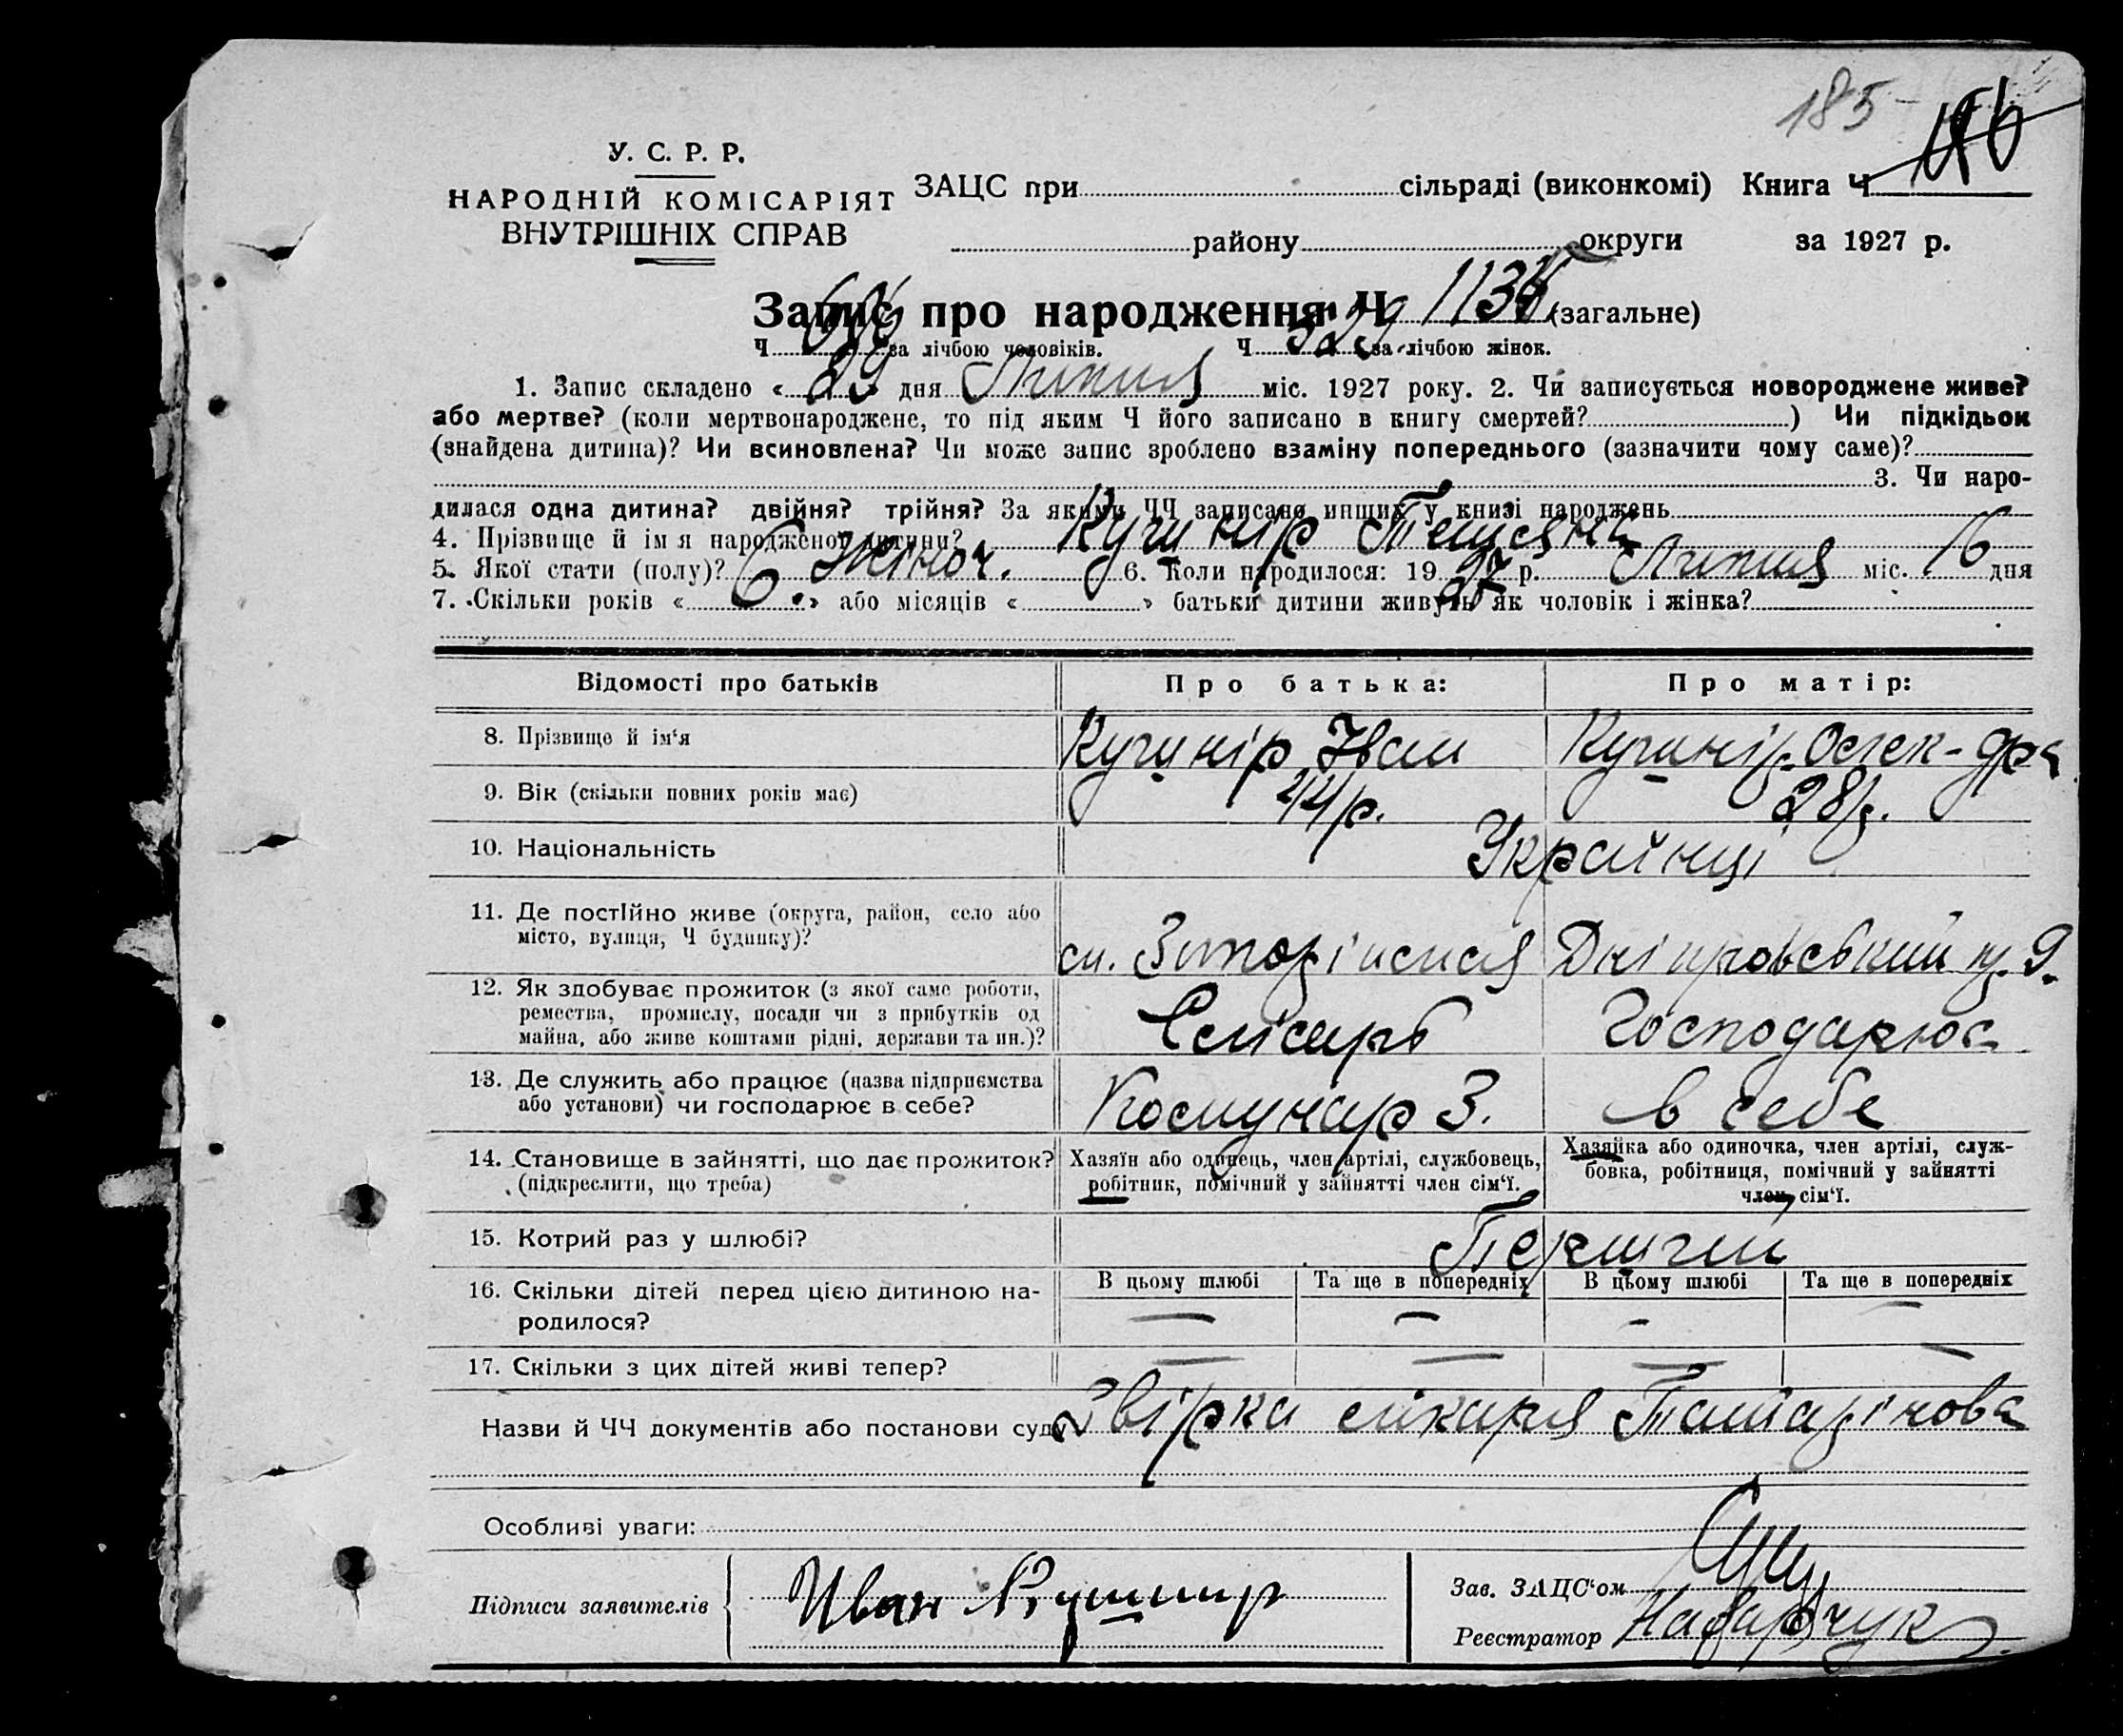 185
У. С. Р. Р.
НАРОДНІЙ КОМІСАРІЯТ
ВНУТРІШНІХ СПРАВ
ЗАЦС при сільраді (виконкомі) Книга Ч
району округи за 1927 р.
Запис про народження Ч 1135 (загальне)
Ч 606 за лічбою чоловіків. Ч 529 за лічбою жінок.
1. Запис складено « 29 дня Липня міс. 1927 року. 2. Чи записується новороджене живе?
або мертве? (коли мертвонароджене, то під яким Ч його записано в книгу смертей? ) Чи підкідьок
(знайдена дитина)? Чи всиновлена? Чи може запис зроблено взаміну попереднього (зазначити чому саме)?
3. Чи наро-
дилася одна дитина? двійня? трійня? За якими ЧЧ записано инших у книзі народжень
4. Прізвище й ім я народженої дитини? Кушнір Тетяна
5. Якої стати (полу)? жіноч. 6. Коли народилося: 19 27 р. Липня міс. 16 дня
7. Скільки років « 6. » або місяців « » батьки дитини живуть як чоловік і жінка?
Відомості про батьків Про батька: Про матір:
8. Прізвище й ім‘я Кушнір Іван Кушнір Олек-дра
9. Вік (скільки повних років має) 28р.
10. Національність Українці
11. Де постійно живе (округа, район, село або
місто, вулиця, Ч будинку)?
Дніпровський 9.
12. Як здобуває прожиток (з якої саме роботи,
ремества, промислу, посади чи з прибутків од
майна, або живе коштами рідні, держави та ин.)?
Слісарь Господарює
13. Де служить або працює (назва підприємства
або установи) чи господарює в себе?
Комунар З. в себе
14. Становище в зайнятті, що дає прожиток?
(підкреслити, що треба)
Хазяїн або одинець, член артілі, службовець,
робітник, помічний у зайнятті член сім‘ї.
Хазяйка або одиночка, член артілі, служ-
бовка, робітниця, помічний у зайнятті
член сім‘ї.
15. Котрий раз у шлюбі? Перший
16. Скільки дітей перед цією дитиною на-
родилося?
В цьому шлюбі Та ще в попередніх В цьому шлюбі Та ще в попередніх
— — - —
17. Скільки з цих дітей живі тепер? — — — —
Назви й ЧЧ документів або постанови суду лікаря
Особливі уваги:
Підписи заявителів Иван Кушнир
Зав. ЗАЦС‘ом
Реєстратор